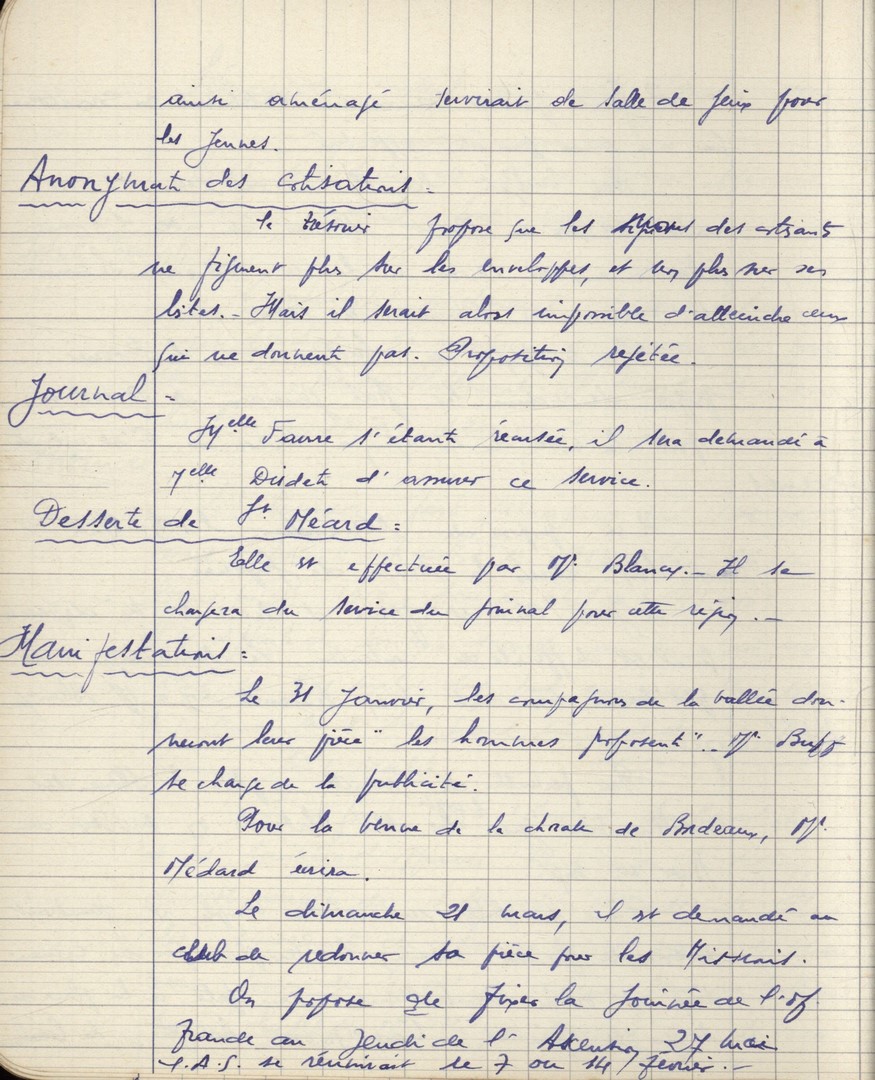 ainsi aménagé servirait de salle de jeux pour
les jeunes.
Anonymat des cotisations :
le trésorier propose que les noms des cotisants
ne figurent plus sur les enveloppes, et non plus sur ses
listes. - Mais il serait alors impossible d'atteindre ceux
qui ne donnent pas. Proposition rejetée.
Journal :
Melle Faure s'étant récusée, il sera demandé à
Melle Disdet d'assurer ce service.
Desserte de St Méard :
Elle est effectuée par Mr. Blancy. - Il se
chargera du service du journal pour cette région. -
Manifestations :
Le 31 Janvier, les compagnons de la vallée don-
neront leur pièce "les hommes proposent". - Mr.
se charge de la publicité.
Pour la venue de la chorale de Bordeaux, Mr.
Médard écrira.
Le dimanche 21 mars, il est demandé au
club de redonner sa pièce pour les Missions.
On propose de fixer la Journée de l'of
frande au Jeudi de l'Ascension 27 mai
L.A.G. se réunirait le 7 ou 14 février. -